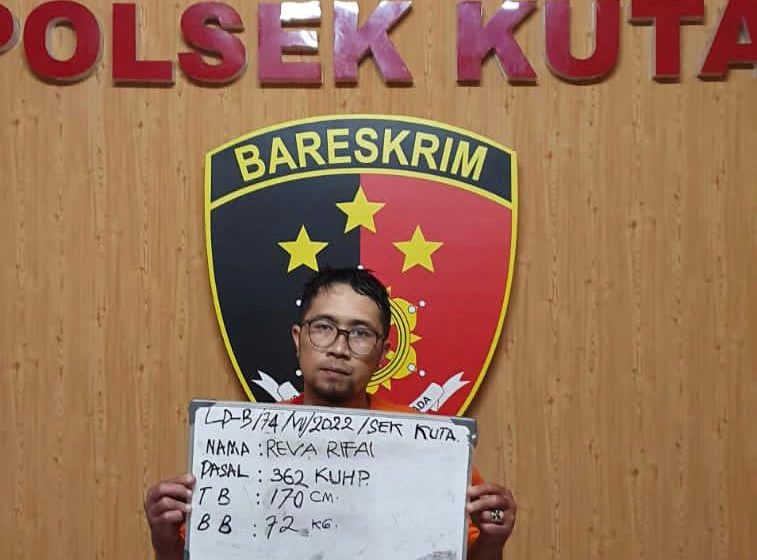 POLSEK KUTA
BARESKRIM
LP-B/74/VI/2022/SEK KUTA.
NAMA : REVA RIFAI
PASAL : 362 KUHP.
TB : 170 CM.
BB : 72 KG.
ADA